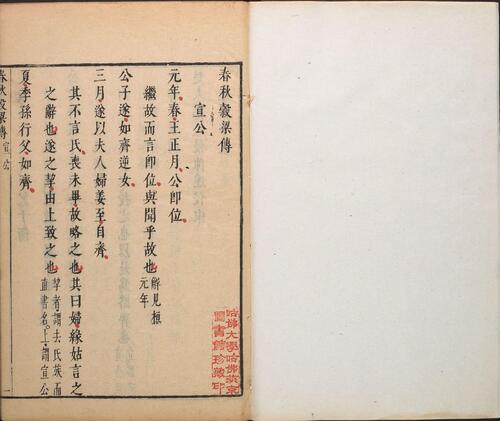 春秋穀梁傳
宣公
元年春王正月公即位
繼故而言即位與聞乎故也解見桓元年
公子遂如齊逆女
三月遂以夫人婦姜至自齊
其不言氏喪未畢故略之也其曰婦緣姑言之
之辭也遂之挈由上致之也挈者謂去氏族而直書名上謂宣公
夏季孫行父如齊
春秋穀梁傳 宣公 一
哈佛大學哈佛漢和
圖書館珍藏印